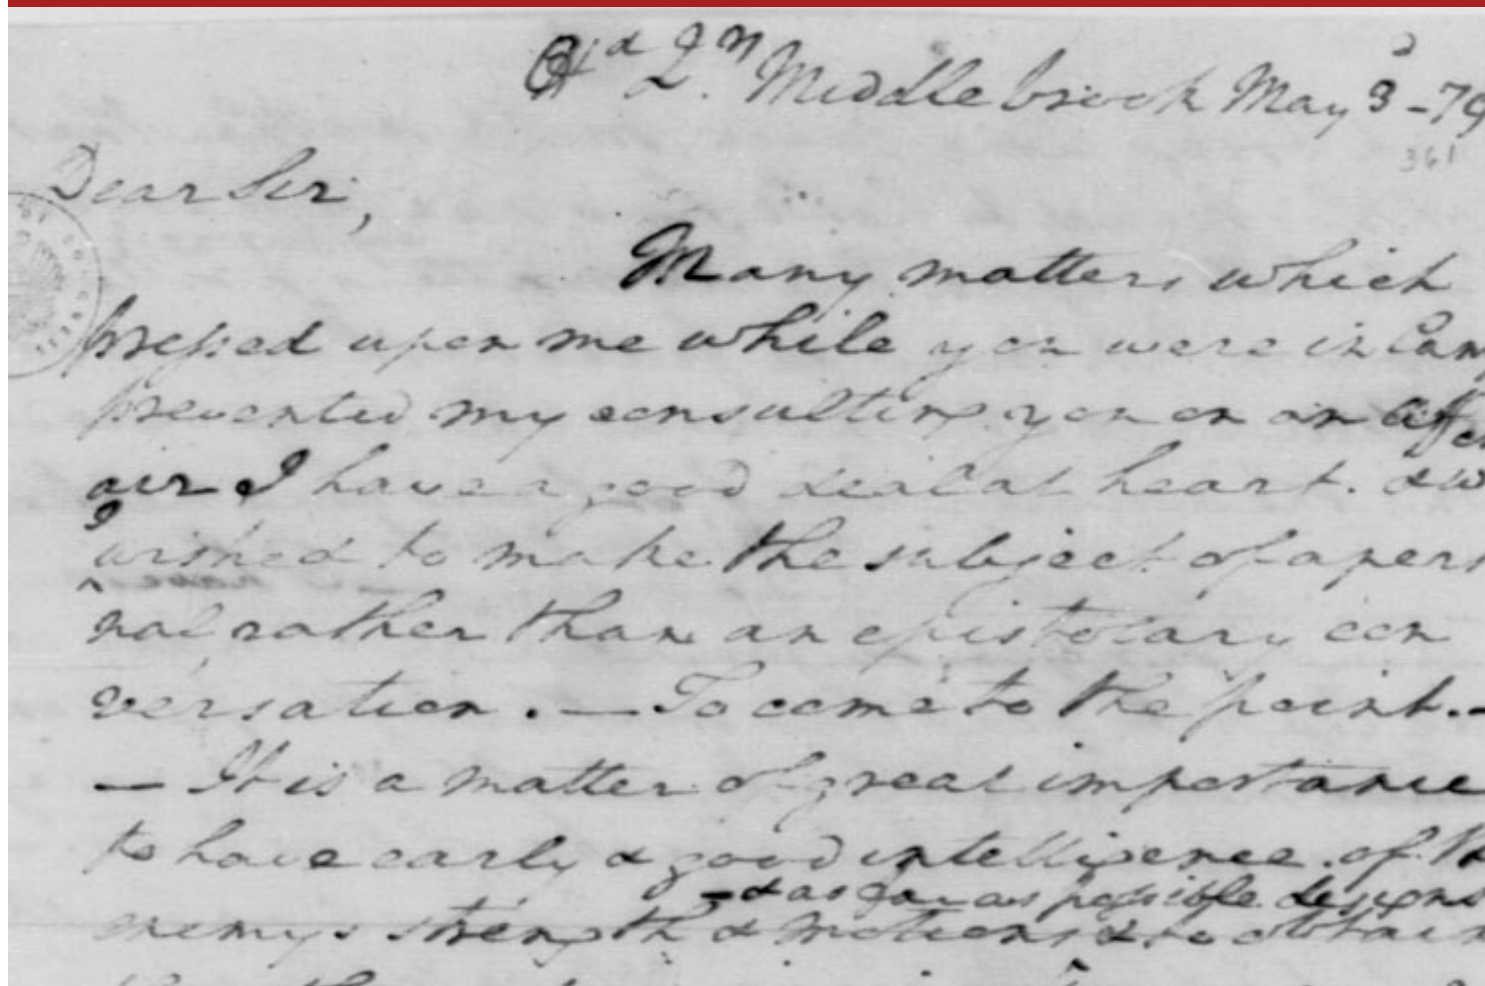 Hd Qrs Middle brook May 3d -79
361
Dear Sir,
Many matters which
pressed upon me while you were in Cam
prevented my consulting you on an aff
air I have a good deal at heart. & w
I wished to make the subject of a pers
nal rather than an epistolary con
versation. — To come to the point. —
— It is a matter of great importance
to have early & good intelligence of th
— & as far as possible designs
enemys strength & motions & to obtain